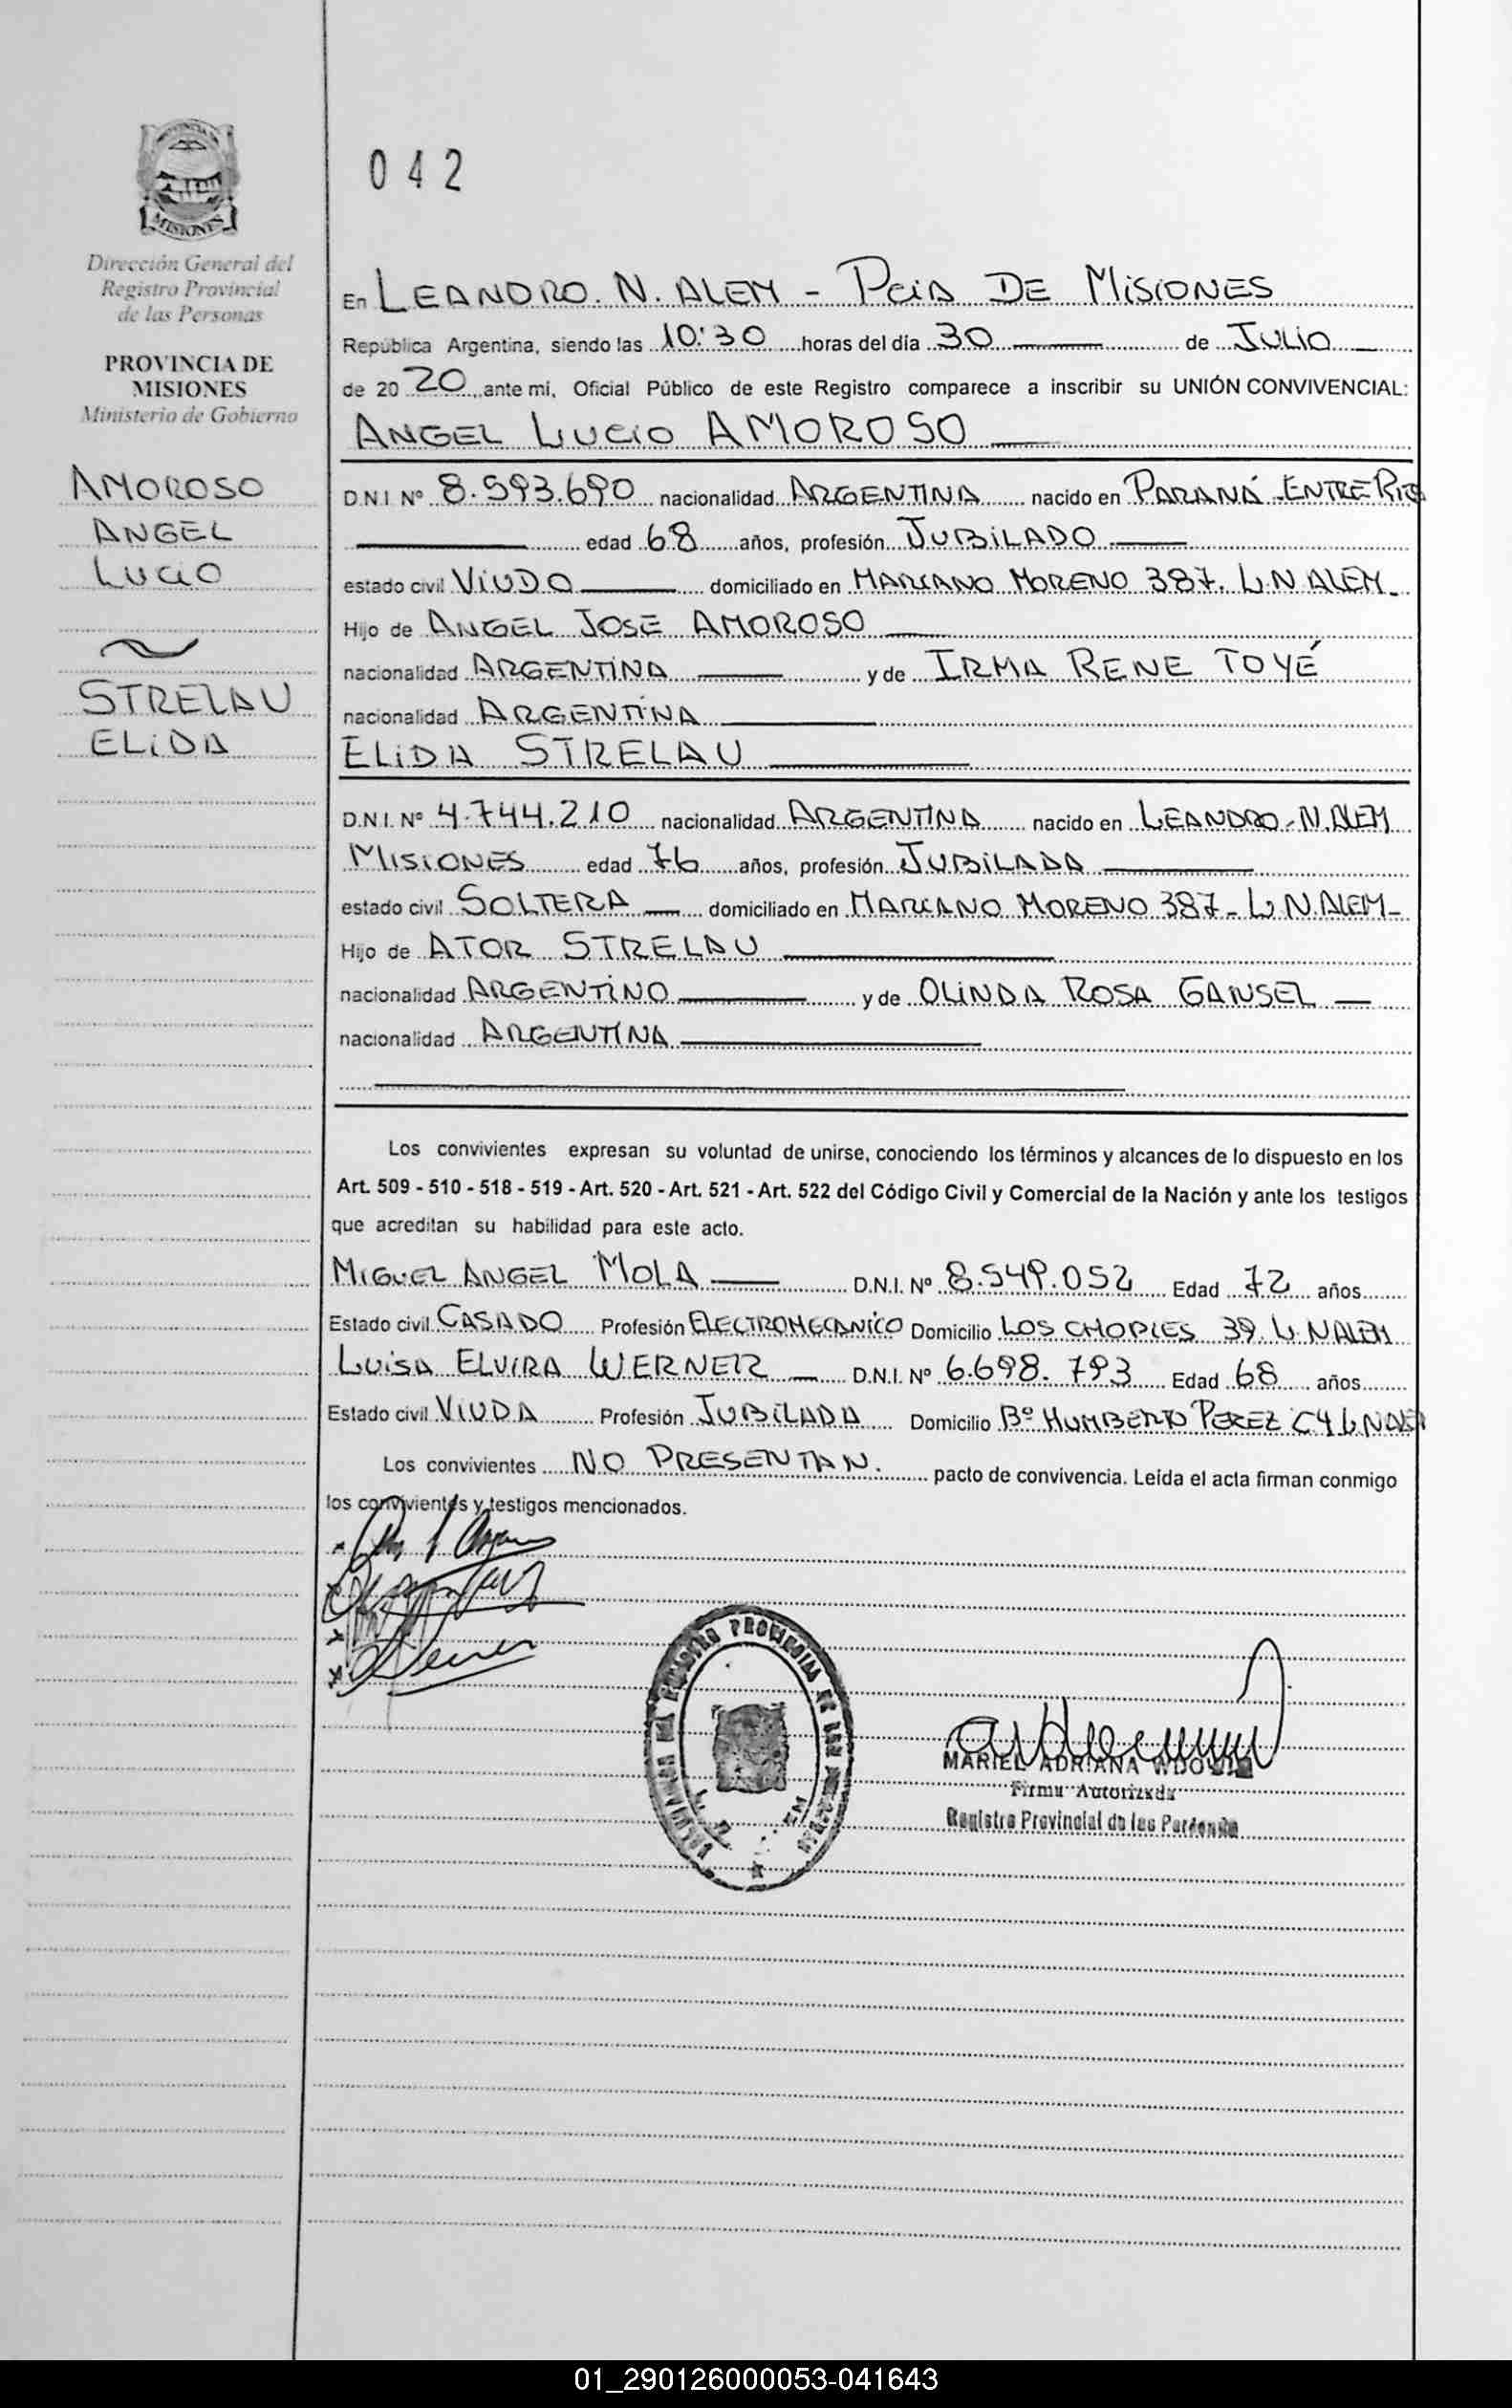 MISIONES
Dirección General del
Registro Provincial
de las Personas
PROVINCIA DE
MISIONES
Ministerio de Gobierno
AMOROSO
ANGEL
LUCIO
STRELAU
ELIDA
042
En LEANDRO. N. ALEM - PCIA DE MISIONES
República Argentina, siendo las 10:30 horas del día 30 de JULIO
de 20 20 ante mi, Oficial Público de este Registro comparece a inscribir su UNIÓN CONVIVENCIAL:
ANGEL LUCIO AMOROSO
D.N.I. Nº 8.593.690 nacionalidad ARGENTINA nacido en PARANÁ - ENTRE RIOS
edad 68 años, profesión JUBILADO
estado civil VIUDO domiciliado en MARIANO MORENO 387. L.N ALEM
Hijo de ANGEL JOSE AMOROSO
nacionalidad ARGENTINA y de IRMA RENE TOYÉ
nacionalidad ARGENTINA
ELIDA STRELAU
D.N.I. Nº 4.744.210 nacionalidad ARGENTINA nacido en LEANDRO - N. ALEM
MISIONES edad 76 años, profesión JUBILADA
estado civil SOLTERA domiciliado en MARIANO MORENO 387 - L N. ALEM -
Hijo de ATOR STRELAU
nacionalidad ARGENTINO y de OLINDA ROSA GANSEL
nacionalidad ARGENTINA
Los convivientes expresan su voluntad de unirse, conociendo los términos y alcances de lo dispuesto en los
Art. 509 - 510 - 518 - 519 - Art. 520 - Art. 521 - Art. 522 del Código Civil y Comercial de la Nación y ante los testigos
que acreditan su habilidad para este acto.
MIGUEL ANGEL MOLA D.N.I. Nº 8.549.052 Edad 72 años
Estado civil CASADO Profesión ELECTROMECANICO Domicilio LOS CHOPLES 39. L. N ALEM
LUISA ELVIRA WERNER D.N.I. Nº 6.698.793 Edad 68 años
Estado civil VIUDA Profesión JUBILADA Domicilio Bº HUMBERTO PEREZ C4 L N ALEM
Los convivientes NO PRESENTAN. pacto de convivencia. Leída el acta firman conmigo
los convivientes y testigos mencionados.
MARIEL ADRIANA
Firma Autorizada
Registro Provincial de las Personas
01_290126000053-041643